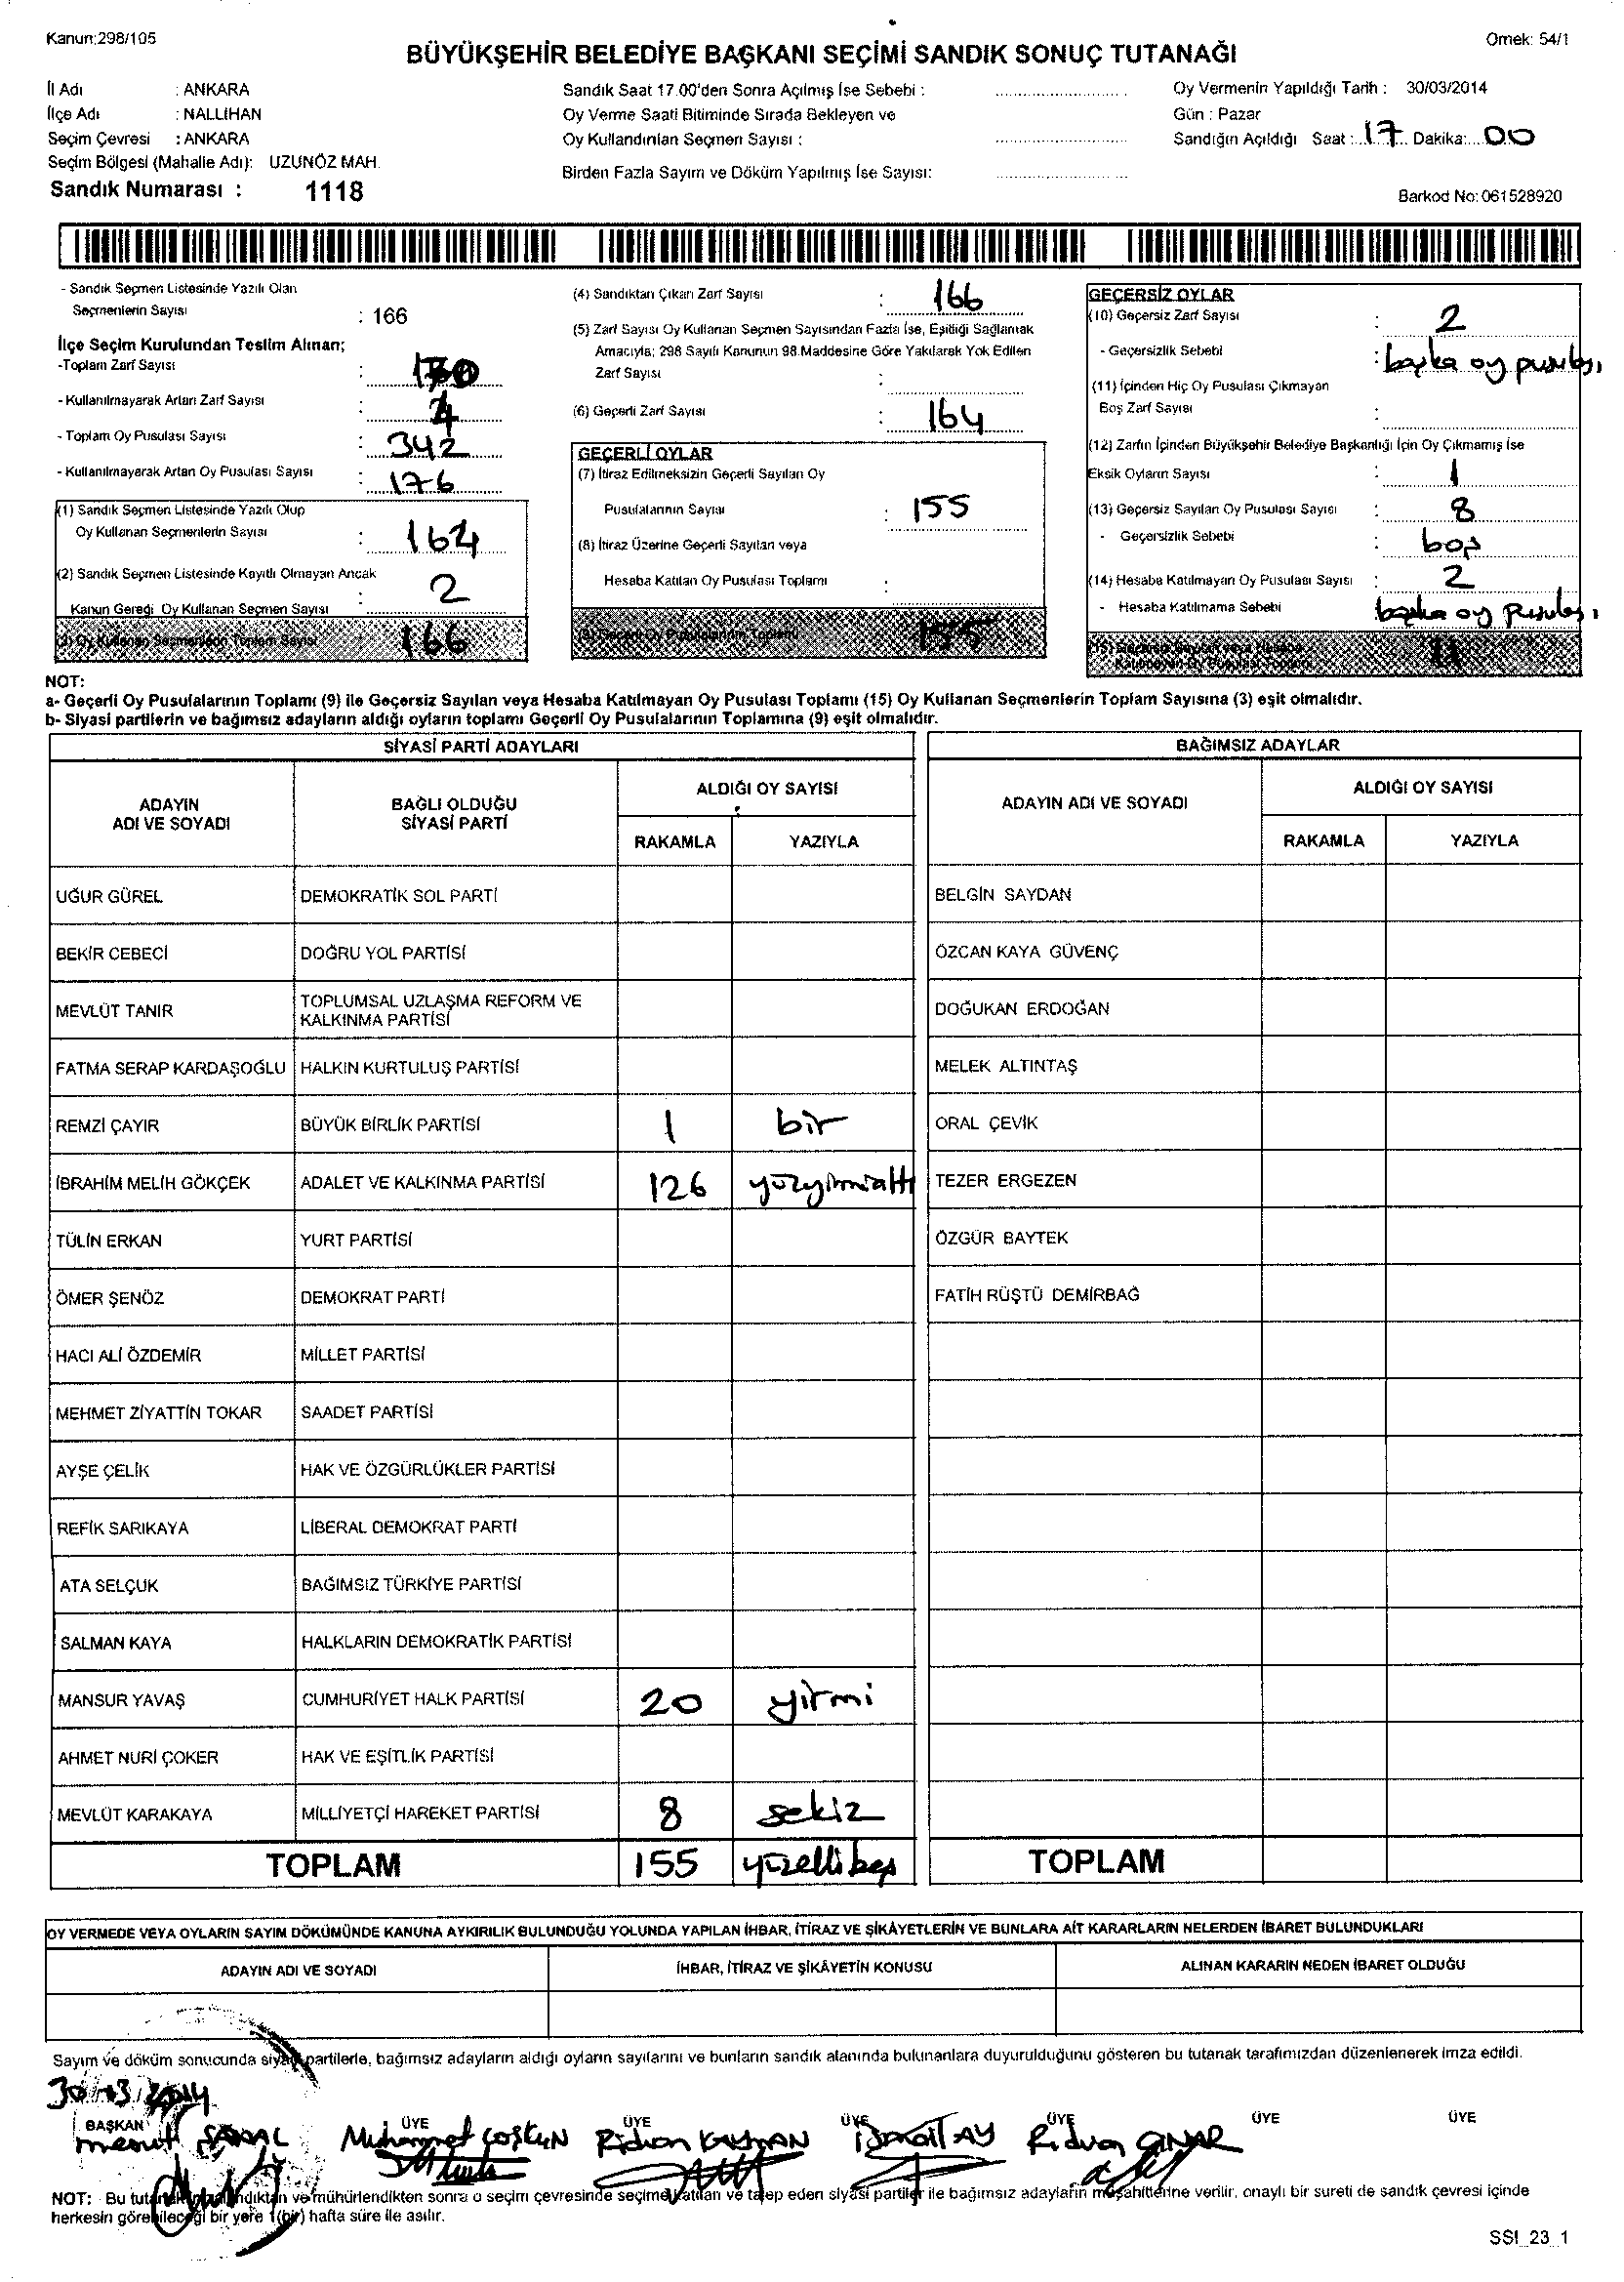 Kanun:298/105
Örnek: 54/1
BÜYÜKŞEHİR BELEDİYE BAŞKANI SEÇİMİ SANDIK SONUÇ TUTANAĞI
İl Adı : ANKARA
İlçe Adı : NALLIHAN
Seçim Çevresi : ANKARA
Seçim Bölgesi (Mahalle Adı): UZUNÖZ MAH.
Sandık Numarası : 1118
Sandık Saat 17.00'den Sonra Açılmış İse Sebebi :
Oy Verme Saati Bitiminde Sırada Bekleyen ve
Oy Kullandırılan Seçmen Sayısı :
Birden Fazla Sayım ve Döküm Yapılmış İse Sayısı:
Oy Vermenin Yapıldığı Tarih : 30/03/2014
Gün : Pazar
Sandığın Açıldığı Saat : 17 Dakika: 00
Barkod No: 061528920
- Sandık Seçmen Listesinde Yazılı Olan
Seçmenlerin Sayısı : 166
İlçe Seçim Kurulundan Teslim Alınan;
-Toplam Zarf Sayısı :
- Kullanılmayarak Artan Zarf Sayısı : 4
- Toplam Oy Pusulası Sayısı : 342
- Kullanılmayarak Artan Oy Pusulası Sayısı : 176
(1) Sandık Seçmen Listesinde Yazılı Olup
Oy Kullanan Seçmenlerin Sayısı : 164
(2) Sandık Seçmen Listesinde Kayıtlı Olmayan Ancak
Kanun Gereği Oy Kullanan Seçmen Sayısı : 2
(3) Oy Kullanan Seçmenlerin Toplam Sayısı 166
(4) Sandıktan Çıkan Zarf Sayısı : 166
(5) Zarf Sayısı Oy Kullanan Seçmen Sayısından Fazla İse, Eşitliği Sağlamak
Amacıyla; 298 Sayılı Kanunun 98.Maddesine Göre Yakılarak Yok Edilen
Zarf Sayısı :
(6) Geçerli Zarf Sayısı : 164
GEÇERLİ OYLAR
(7) İtiraz Edilmeksizin Geçerli Sayılan Oy
Pusulalarının Sayısı : 155
(8) İtiraz Üzerine Geçerli Sayılan veya
Hesaba Katılan Oy Pusulası Toplamı :
(9) Geçerli Oy Pusulalarının Toplamı 155
GEÇERSİZ OYLAR
(10) Geçersiz Zarf Sayısı : 2
- Geçersizlik Sebebi : başka oy pusulası
(11) İçinden Hiç Oy Pusulası Çıkmayan
Boş Zarf Sayısı :
(12) Zarfın İçinden Büyükşehir Belediye Başkanlığı İçin Oy Çıkmamış İse
Eksik Oyların Sayısı : 1
(13) Geçersiz Sayılan Oy Pusulası Sayısı : 8
- Geçersizlik Sebebi : boş
(14) Hesaba Katılmayan Oy Pusulası Sayısı : 2
- Hesaba Katılmama Sebebi : başka oy Pusulası
(15) Geçersiz Sayılan veya Hesaba
Katılmayan Oy Pusulası Toplamı 11
NOT:
a- Geçerli Oy Pusulalarının Toplamı (9) ile Geçersiz Sayılan veya Hesaba Katılmayan Oy Pusulası Toplamı (15) Oy Kullanan Seçmenlerin Toplam Sayısına (3) eşit olmalıdır.
b- Siyasi partilerin ve bağımsız adayların aldığı oyların toplamı Geçerli Oy Pusulalarının Toplamına (9) eşit olmalıdır.
SİYASİ PARTİ ADAYLARI
ADAYIN ADI VE SOYADI BAĞLI OLDUĞU SİYASİ PARTİ ALDIĞI OY SAYISI
RAKAMLA YAZIYLA
UĞUR GÜREL DEMOKRATİK SOL PARTİ
BEKİR CEBECİ DOĞRU YOL PARTİSİ
MEVLÜT TANIR TOPLUMSAL UZLAŞMA REFORM VE KALKINMA PARTİSİ
FATMA SERAP KARDAŞOĞLU HALKIN KURTULUŞ PARTİSİ
REMZİ ÇAYIR BÜYÜK BİRLİK PARTİSİ 1 bir
İBRAHİM MELİH GÖKÇEK ADALET VE KALKINMA PARTİSİ 126 yüzyirmialtı
TÜLİN ERKAN YURT PARTİSİ
ÖMER ŞENÖZ DEMOKRAT PARTİ
HACI ALİ ÖZDEMİR MİLLET PARTİSİ
MEHMET ZİYATTİN TOKAR SAADET PARTİSİ
AYŞE ÇELİK HAK VE ÖZGÜRLÜKLER PARTİSİ
REFİK SARIKAYA LİBERAL DEMOKRAT PARTİ
ATA SELÇUK BAĞIMSIZ TÜRKİYE PARTİSİ
SALMAN KAYA HALKLARIN DEMOKRATİK PARTİSİ
MANSUR YAVAŞ CUMHURİYET HALK PARTİSİ 20 yirmi
AHMET NURİ ÇOKER HAK VE EŞİTLİK PARTİSİ
MEVLÜT KARAKAYA MİLLİYETÇİ HAREKET PARTİSİ 8 sekiz
TOPLAM 155 yüzellibeş
BAĞIMSIZ ADAYLAR
ADAYIN ADI VE SOYADI ALDIĞI OY SAYISI
RAKAMLA YAZIYLA
BELGİN SAYDAN
ÖZCAN KAYA GÜVENÇ
DOĞUKAN ERDOĞAN
MELEK ALTINTAŞ
ORAL ÇEVİK
TEZER ERGEZEN
ÖZGÜR BAYTEK
FATİH RÜŞTÜ DEMİRBAĞ
TOPLAM
OY VERMEDE VEYA OYLARIN SAYIM DÖKÜMÜNDE KANUNA AYKIRILIK BULUNDUĞU YOLUNDA YAPILAN İHBAR, İTİRAZ VE ŞİKÂYETLERİN VE BUNLARA AİT KARARLARIN NELERDEN İBARET BULUNDUKLARI
ADAYIN ADI VE SOYADI İHBAR, İTİRAZ VE ŞİKÂYETİN KONUSU ALINAN KARARIN NEDEN İBARET OLDUĞU
Sayım ve döküm sonucunda siyasi partilerle, bağımsız adayların aldığı oyların sayılarını ve bunların sandık alanında bulunanlara duyurulduğunu gösteren bu tutanak tarafımızdan düzenlenerek imza edildi.
30/03/2014
BAŞKAN ÜYE ÜYE ÜYE ÜYE ÜYE ÜYE
mesut Muhammet COŞKUN Rıdvan İsmail AY Rıdvan ÇINAR
NOT: Bu tutanak imzalandıktan ve mühürlendikten sonra o seçim çevresinde seçime katılan ve talep eden siyasi partiler ile bağımsız adayların müşahitlerine verilir, onaylı bir sureti de sandık çevresi içinde
herkesin görebileceği bir yere 1(bir) hafta süre ile asılır.
SSI_23_1